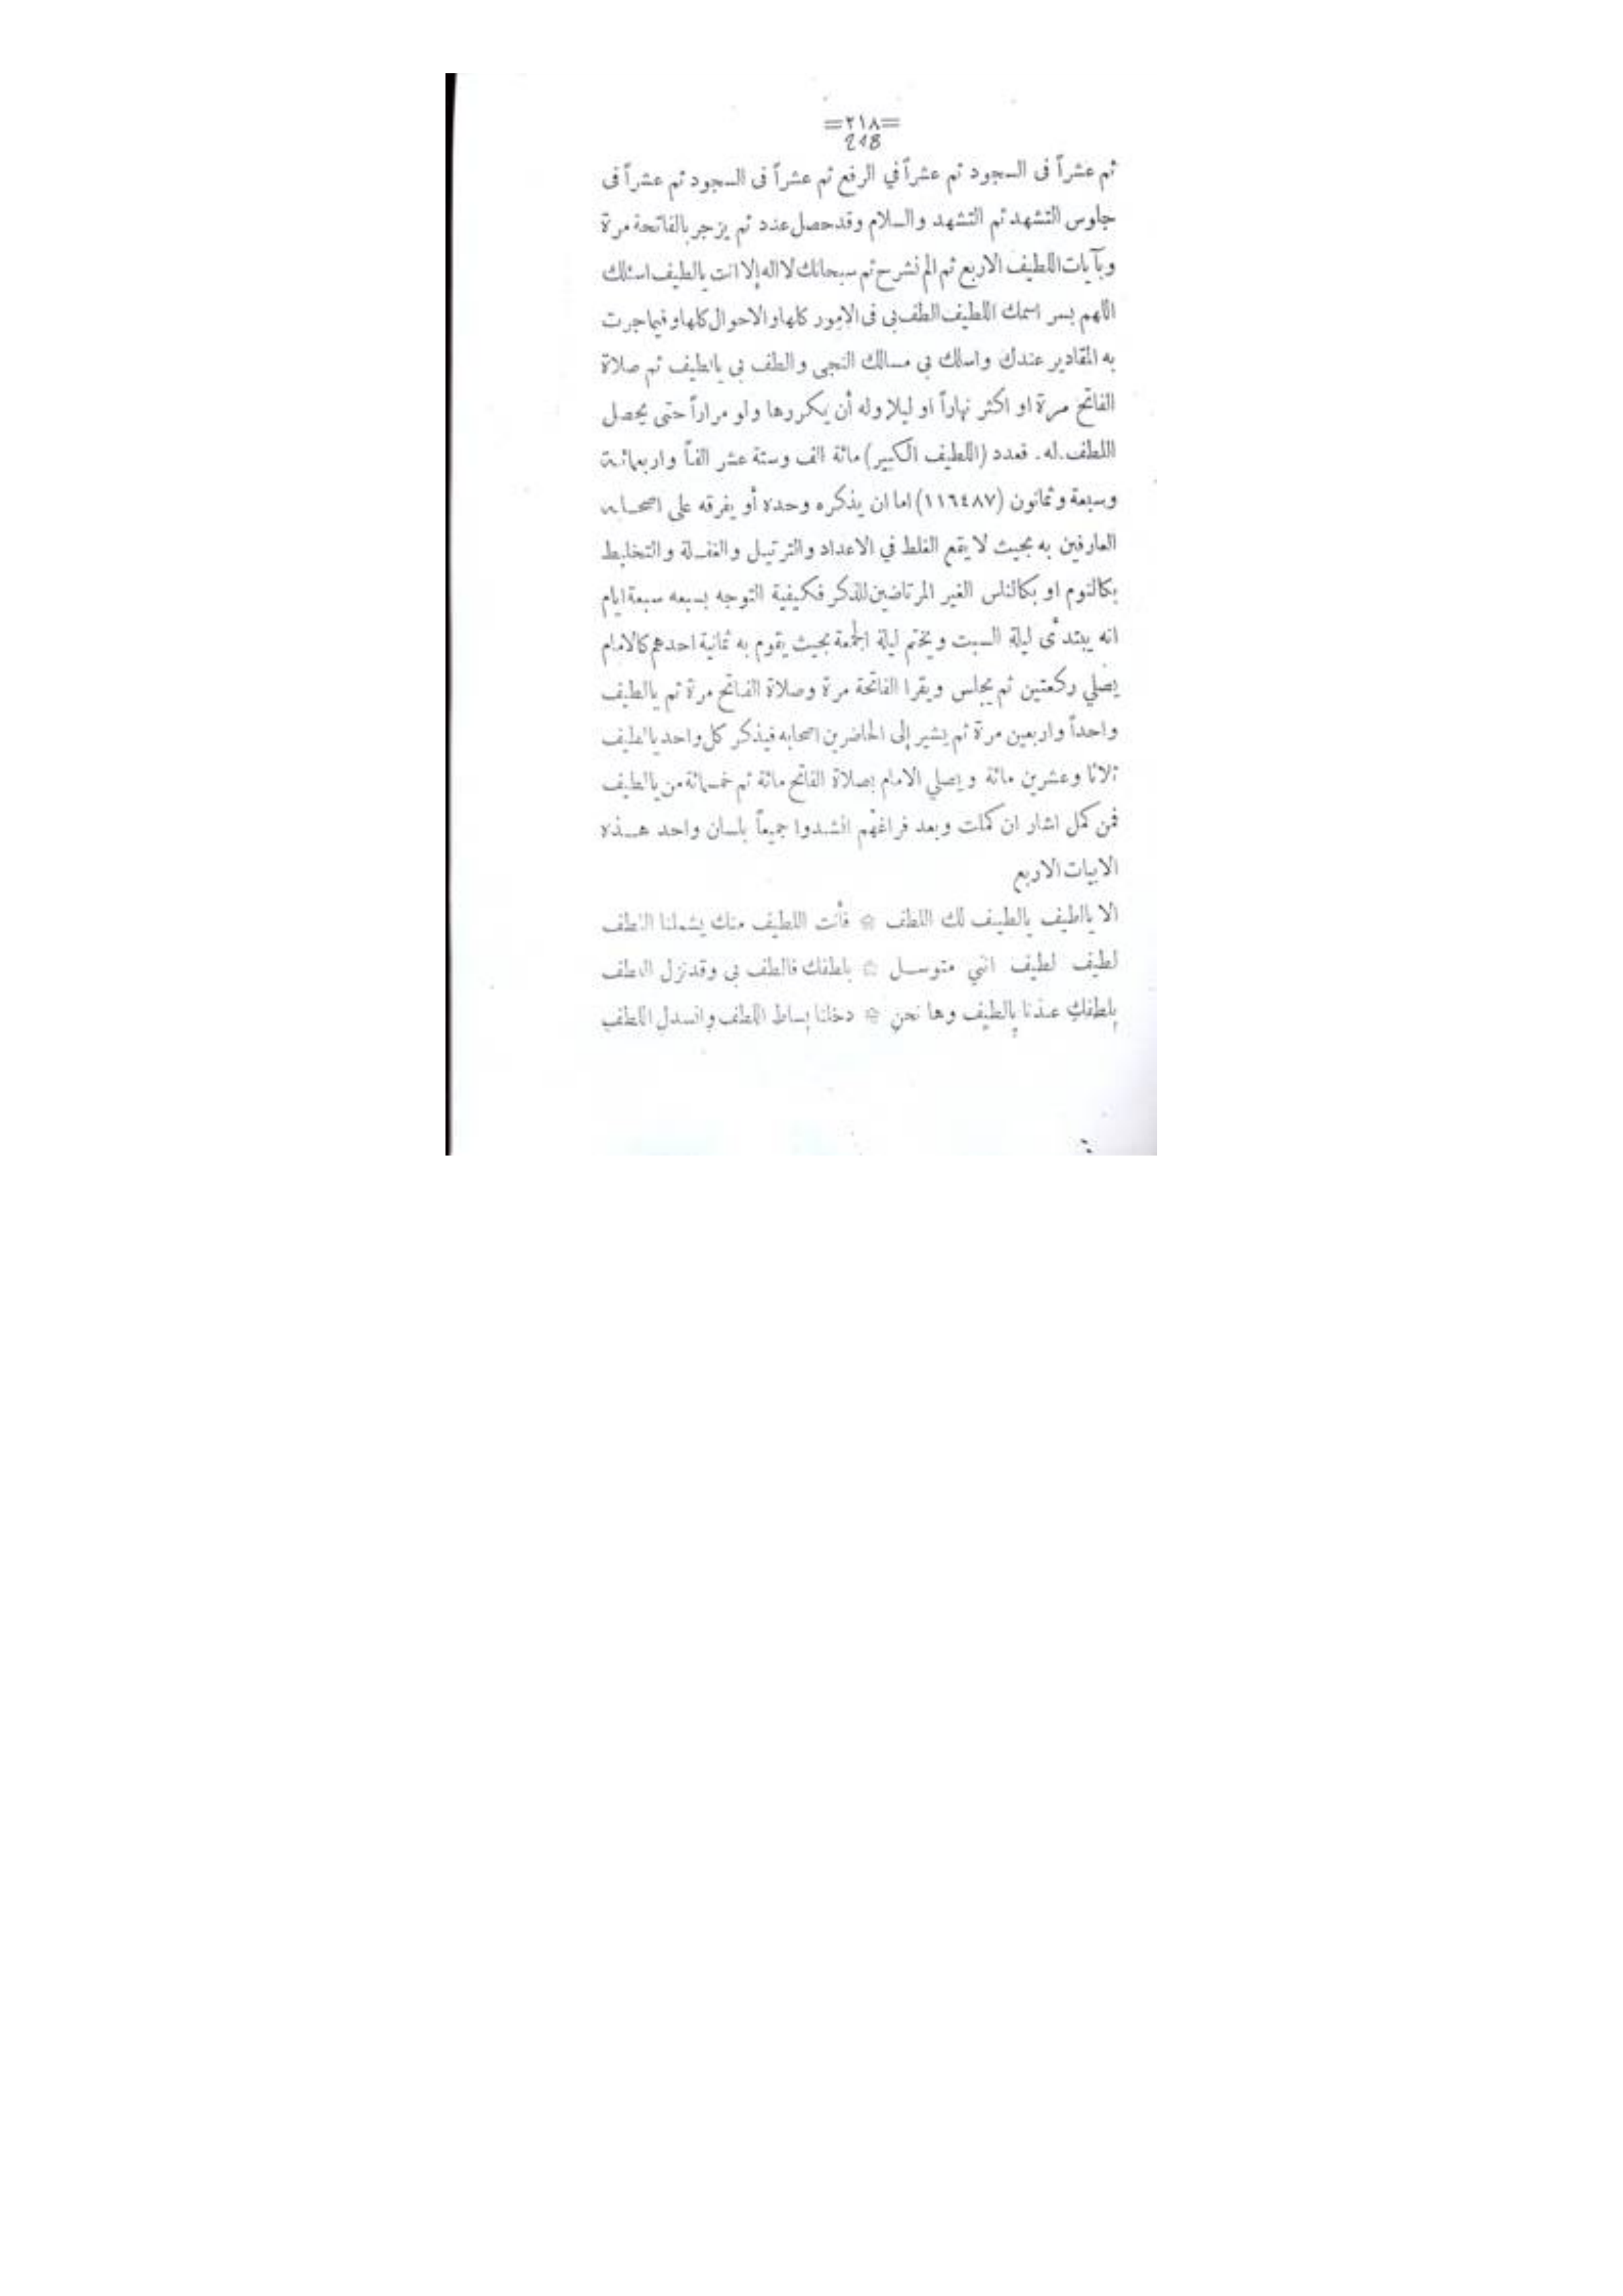 =٢١٨=
218
ثم عشراً فى السجود ثم عشراً في الرفع ثم عشراً فى السجود ثم عشراً فى
جلوس التشهد ثم التشهد والسلام وقد حصل عدد ثم يزجر بالفاتحة مرة
وبآيات اللطيف الاربع ثم الم نشرح ثم سبحانك لا اله إلا انت يالطيف اسئلك
اللهم بسر اسمك اللطيف الطف بى فى الامور كلها والاحوال كلها وفيما جرت
به المقادير عندك واسلك بى مسالك النجى والطف بى يالطيف ثم صلاة
الفاتح مرة او اكثر نهاراً او ليلا وله أن يكررها ولو مراراً حتى يحصل
اللطف له. فعدد (اللطيف الكبير) مائة الف وستة عشر الفاً واربعمائة
وسبعة وثمانون (١١٦٤٨٧) اما ان يذكره وحده أو يفرقه على اصحابه
العارفين به بحيث لا يقع الغلط في الاعداد والترتيل والغفلة والتخليط
بكالنوم او بكالناس الغير المرتاضين للذكر فكيفية التوجه بسبعه سبعة ايام
انه يبتدئ ليلة السبت ويختم ليلة الجمعة بحيث يقوم به ثمانية احدهم كالامام
يصلي ركعتين ثم يجلس ويقرا الفاتحة مرة وصلاة الفاتح مرة ثم يالطيف
واحداً واربعين مرة ثم يشير إلى الحاضرين اصحابه فيذكر كل واحد يالطيف
ثلاثا وعشرين مائة ويصلي الامام بصلاة الفاتح مائة ثم خمسمائة من يالطيف
فمن كمل اشار ان كملت وبعد فراغهم انشدوا جميعاً بلسان واحد هذه
الابيات الاربع
الا يالطيف يالطيف لك اللطف ۞ فأنت اللطيف منك يشملنا اللطف
لطيف لطيف انني متوسل ۞ بلطفك فالطف بى وقد نزل اللطف
بلطفك عذنا يالطيف وها نحن ۞ دخلنا بساط اللطف وانسدل اللطف